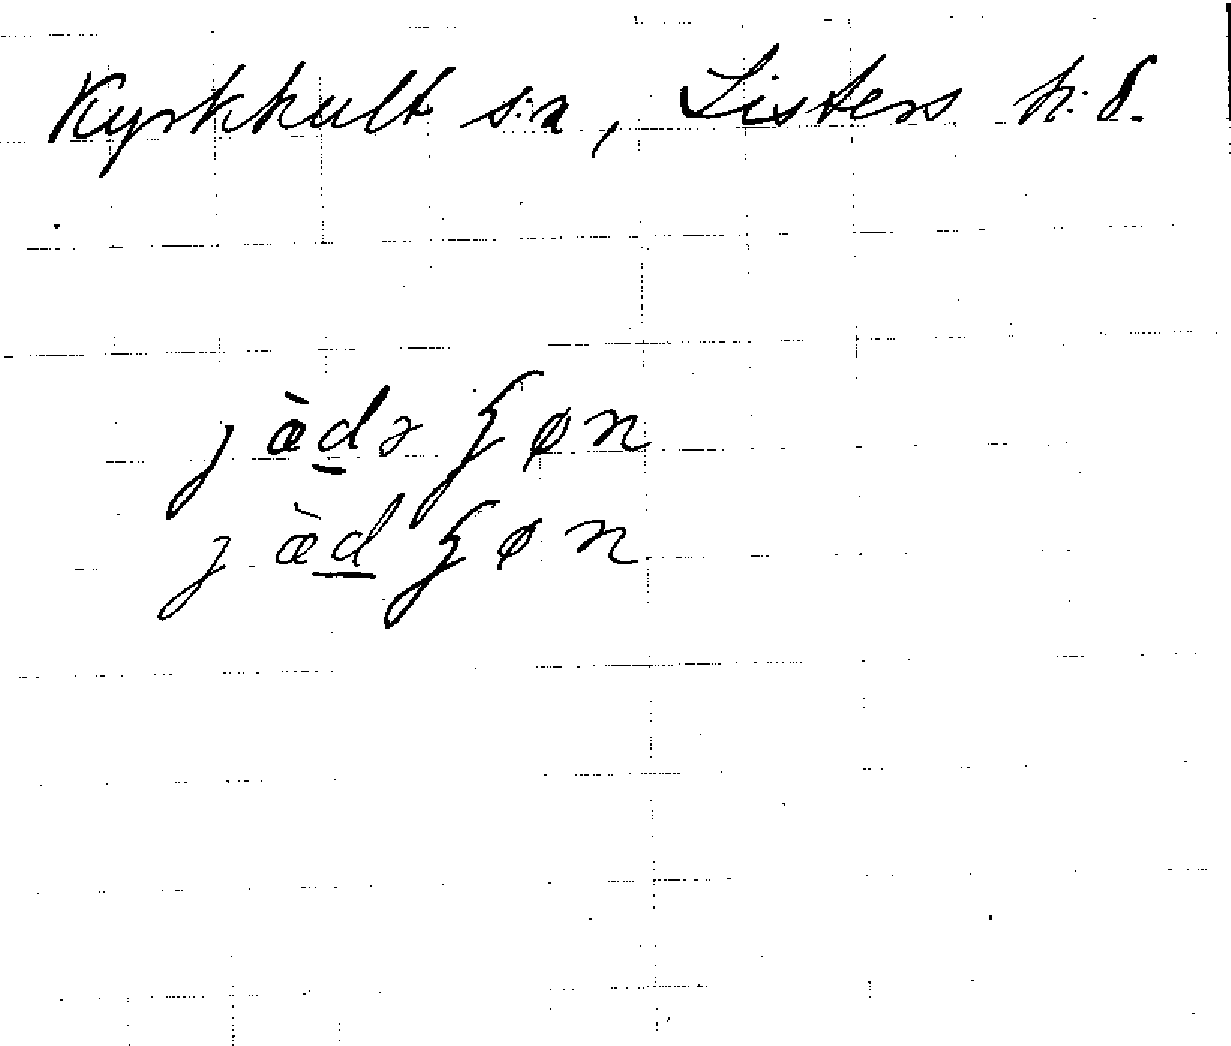 Kyrkhult s:n, Listers h:d.
jæ̀d̲ə ʃøn
jæ̀d̲ ʃøn